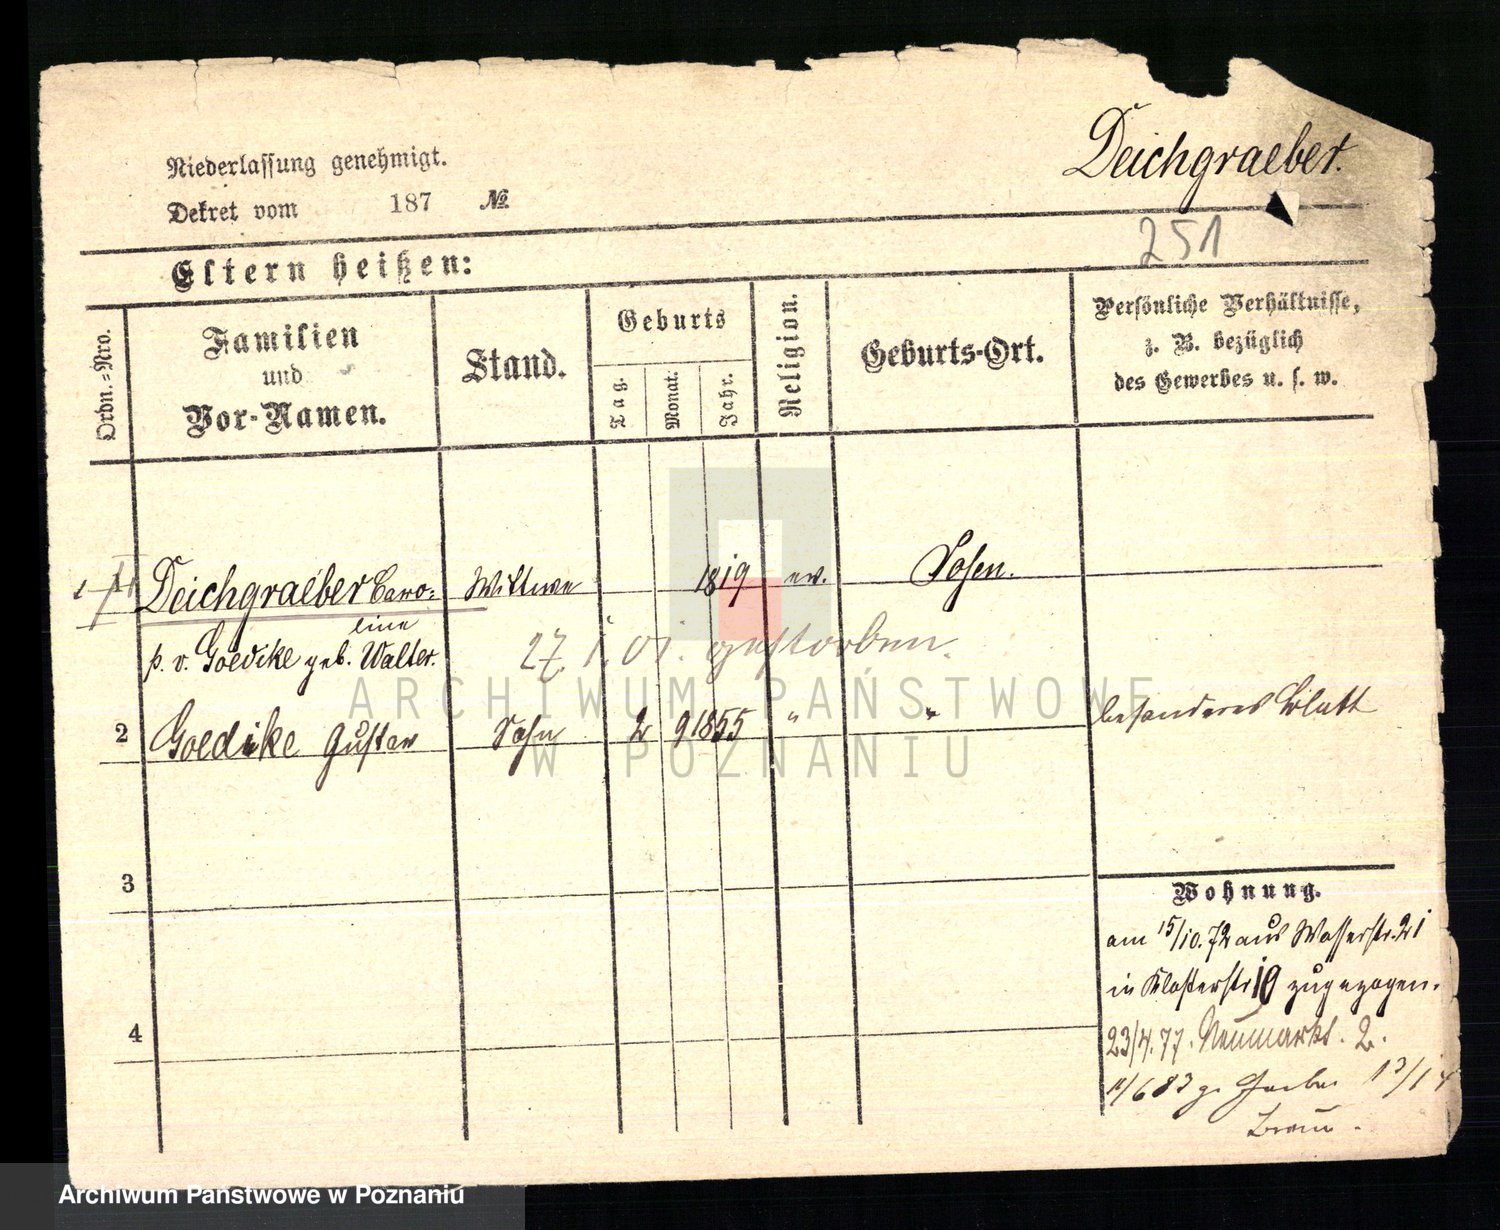 Deichgraeber.
Niederlassung genehmigt.
Dekret vom 187 №
251
Eltern heißen:
Ordn.=Nro.
Familien
und
Vor-Namen.
Stand.
Geburts
Tag.
Monat.
Jahr.
Religion.
Geburts-Ort.
Persönliche Verhältnisse,
z. B. bezüglich
des Gewerbes u. s. w.
1 Deichgraeber Caro= Wittwe 1819 ev. Posen.
line
p. v. Goedcke geb. Walter.
27. 1. 01. gestorben.
2 Goedcke Gustav Sohn 2 9 1855 " " besonderes Blatt
3
Wohnung.
am 15/10. 72 aus Wasserstr. 21
in Klosterstr 19 zugezogen.
4
23/4. 77. Neumarkt. 2.
13/1
ARCHIWUM PAŃSTWOWE
W POZNANIU
Archiwum Państwowe w Poznaniu